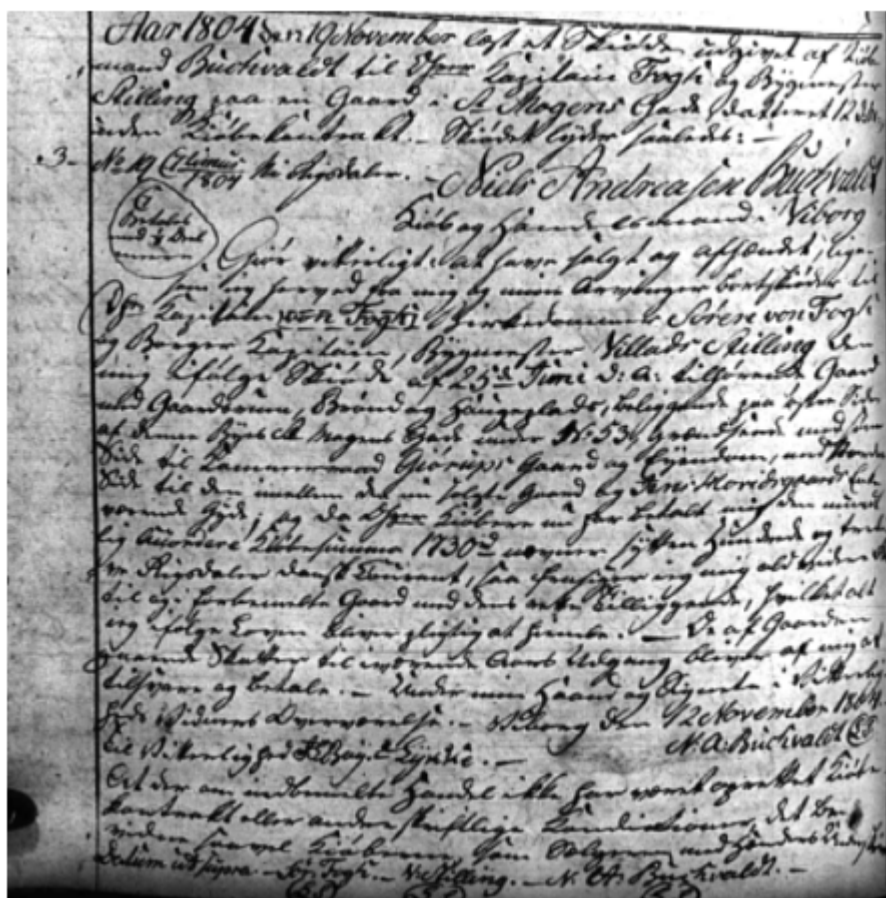 Aar 1804 den 19 November læst et Skiøde udgivet af Kiøb-
mand Buchvaldt til Hrr Kapitain Fogh og Bygmester
Stilling paa en Gaard i St Mogens Gade, datteret 12 d:
uden Kiøbekontrakt. Skiødet lyder saaledes: —
3 No 19 1804 Rigsdaler. — Niels Andreasen Buchvaldt
Kiøb og Handelsmand i Viborg
Giør vitterligt: at have solgt og afhændet, lige-
som jeg herved fra mig og mine Arvinger bortskiøder til
Hrr Kapitain von Fogh, Søren von Fogh
og Borger Kapitain, Bygmester Villads Stilling den
mig ifølge Skiøde af 25d Junii d: A: tilhørende Gaard
med Gaardsrum, Brønd og Haugeplads, beliggende paa østre Side
af denne Byes St Mogens Gade under No 53, grændsende med søndre
Side til Kammerraad Giørups Gaard og Eyendom, med Nordre
Side til den imellem den nu solgte Gaard og Jens
værende Gyde; og da Hrr Kiøbere nu har betalt mig den mind-
lig accorderede Kiøbesumma 1730d nævner sytten Hundrede og tredi-
ve Rigsdaler dansk Courant, saa mig ald videre
til og i forbemelte Gaard med dens rette Tilliggende, hvilket alt
jeg ifølge Loven bliver pligtig at hiemle. — De af Gaarden
gaaende Skatter til indeværende Aars Udgang bliver af mig at
tilsvare og betale. — Under min Haand og Signete i Vitterlig-
heds Vidners Overværelse. — Viborg den 12 November 1804.
N. A: Buchvaldt
Til Vitterlighed —
At der om ommeldte Handel ikke har været oprettet Kiøbe-
kontrakt eller andre skriftlige Conditioner, det be-
vidner saavel Kiøberne som Sælgeren med Hænders Underskrift
Datum ut supra. — Fogh. — V: Stilling. — N. A: Buchvaldt. —